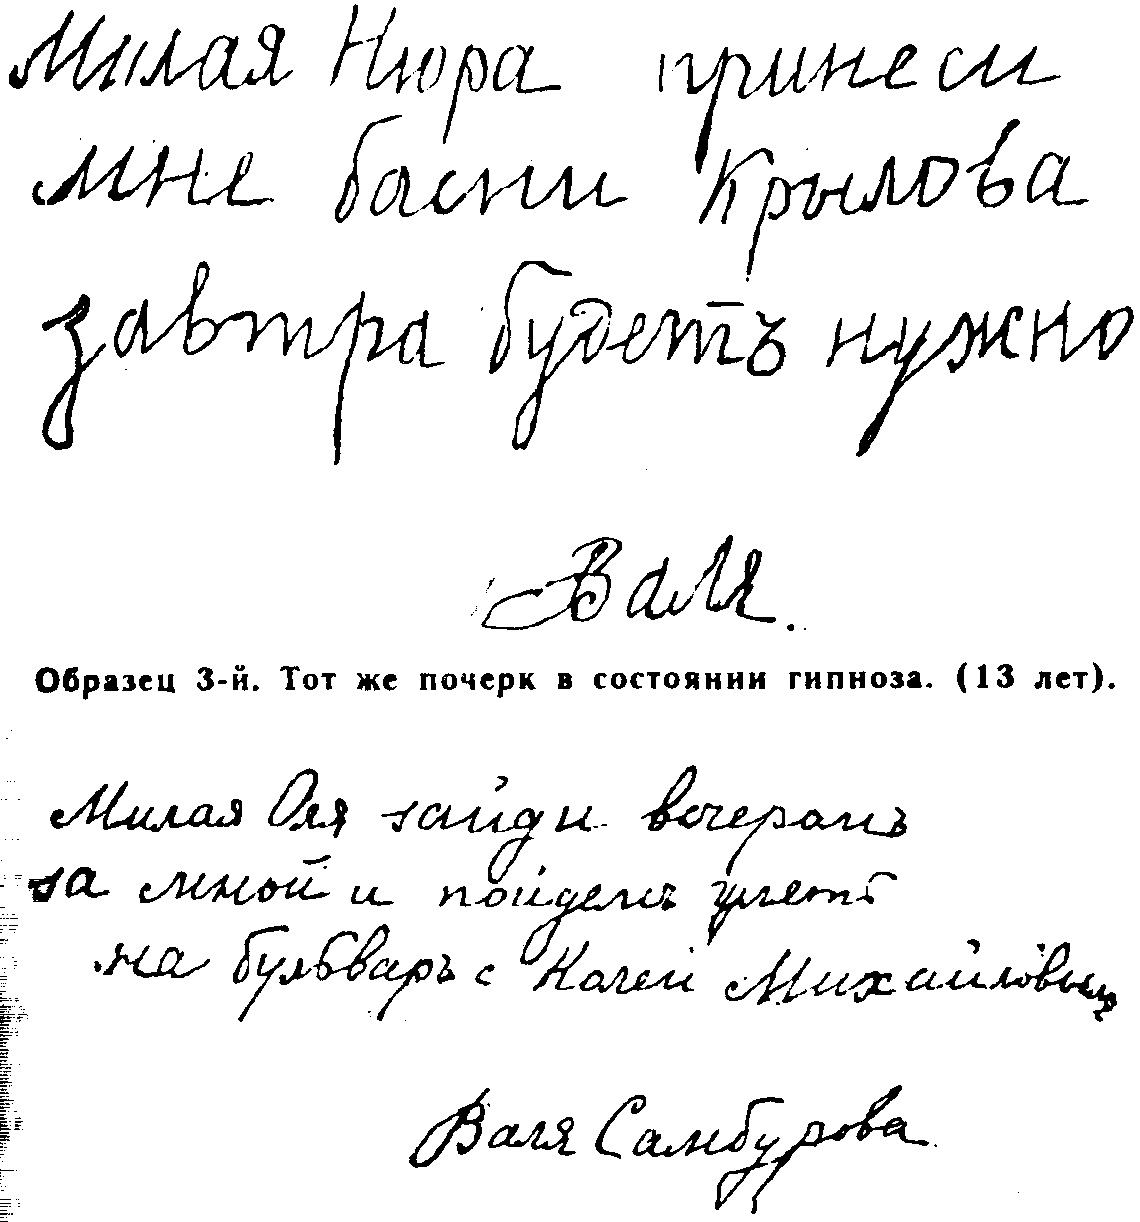 Милая Нюра принеси
мне басни Крылова
завтра будетъ нужно
Валя.
Образец 3-й. Тот же почерк в состоянии гипноза. (13 лет).
Милая Оля зайди вечеромъ
за мной и пойдемъ
на бульваръ с Колей Михайловымъ
Валя Самбурова